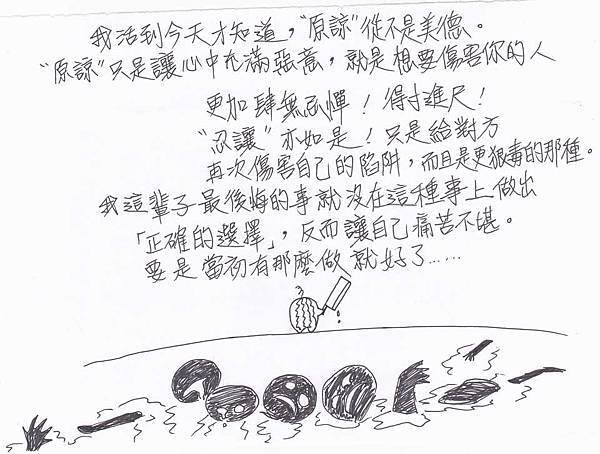 我活到今天才知道，"原諒"從不是美德。
"原諒"只是讓心中充滿惡意，就是想要傷害你的人
更加肆無忌憚！得寸進尺！
"忍讓"亦如是！只是給對方
再次傷害自己的陷阱，而且是更狠毒的那種。
我這輩子最後悔的事就沒在這種事上做出
「正確的選擇」，反而讓自己痛苦不堪。
要是當初有那麼做就好了……